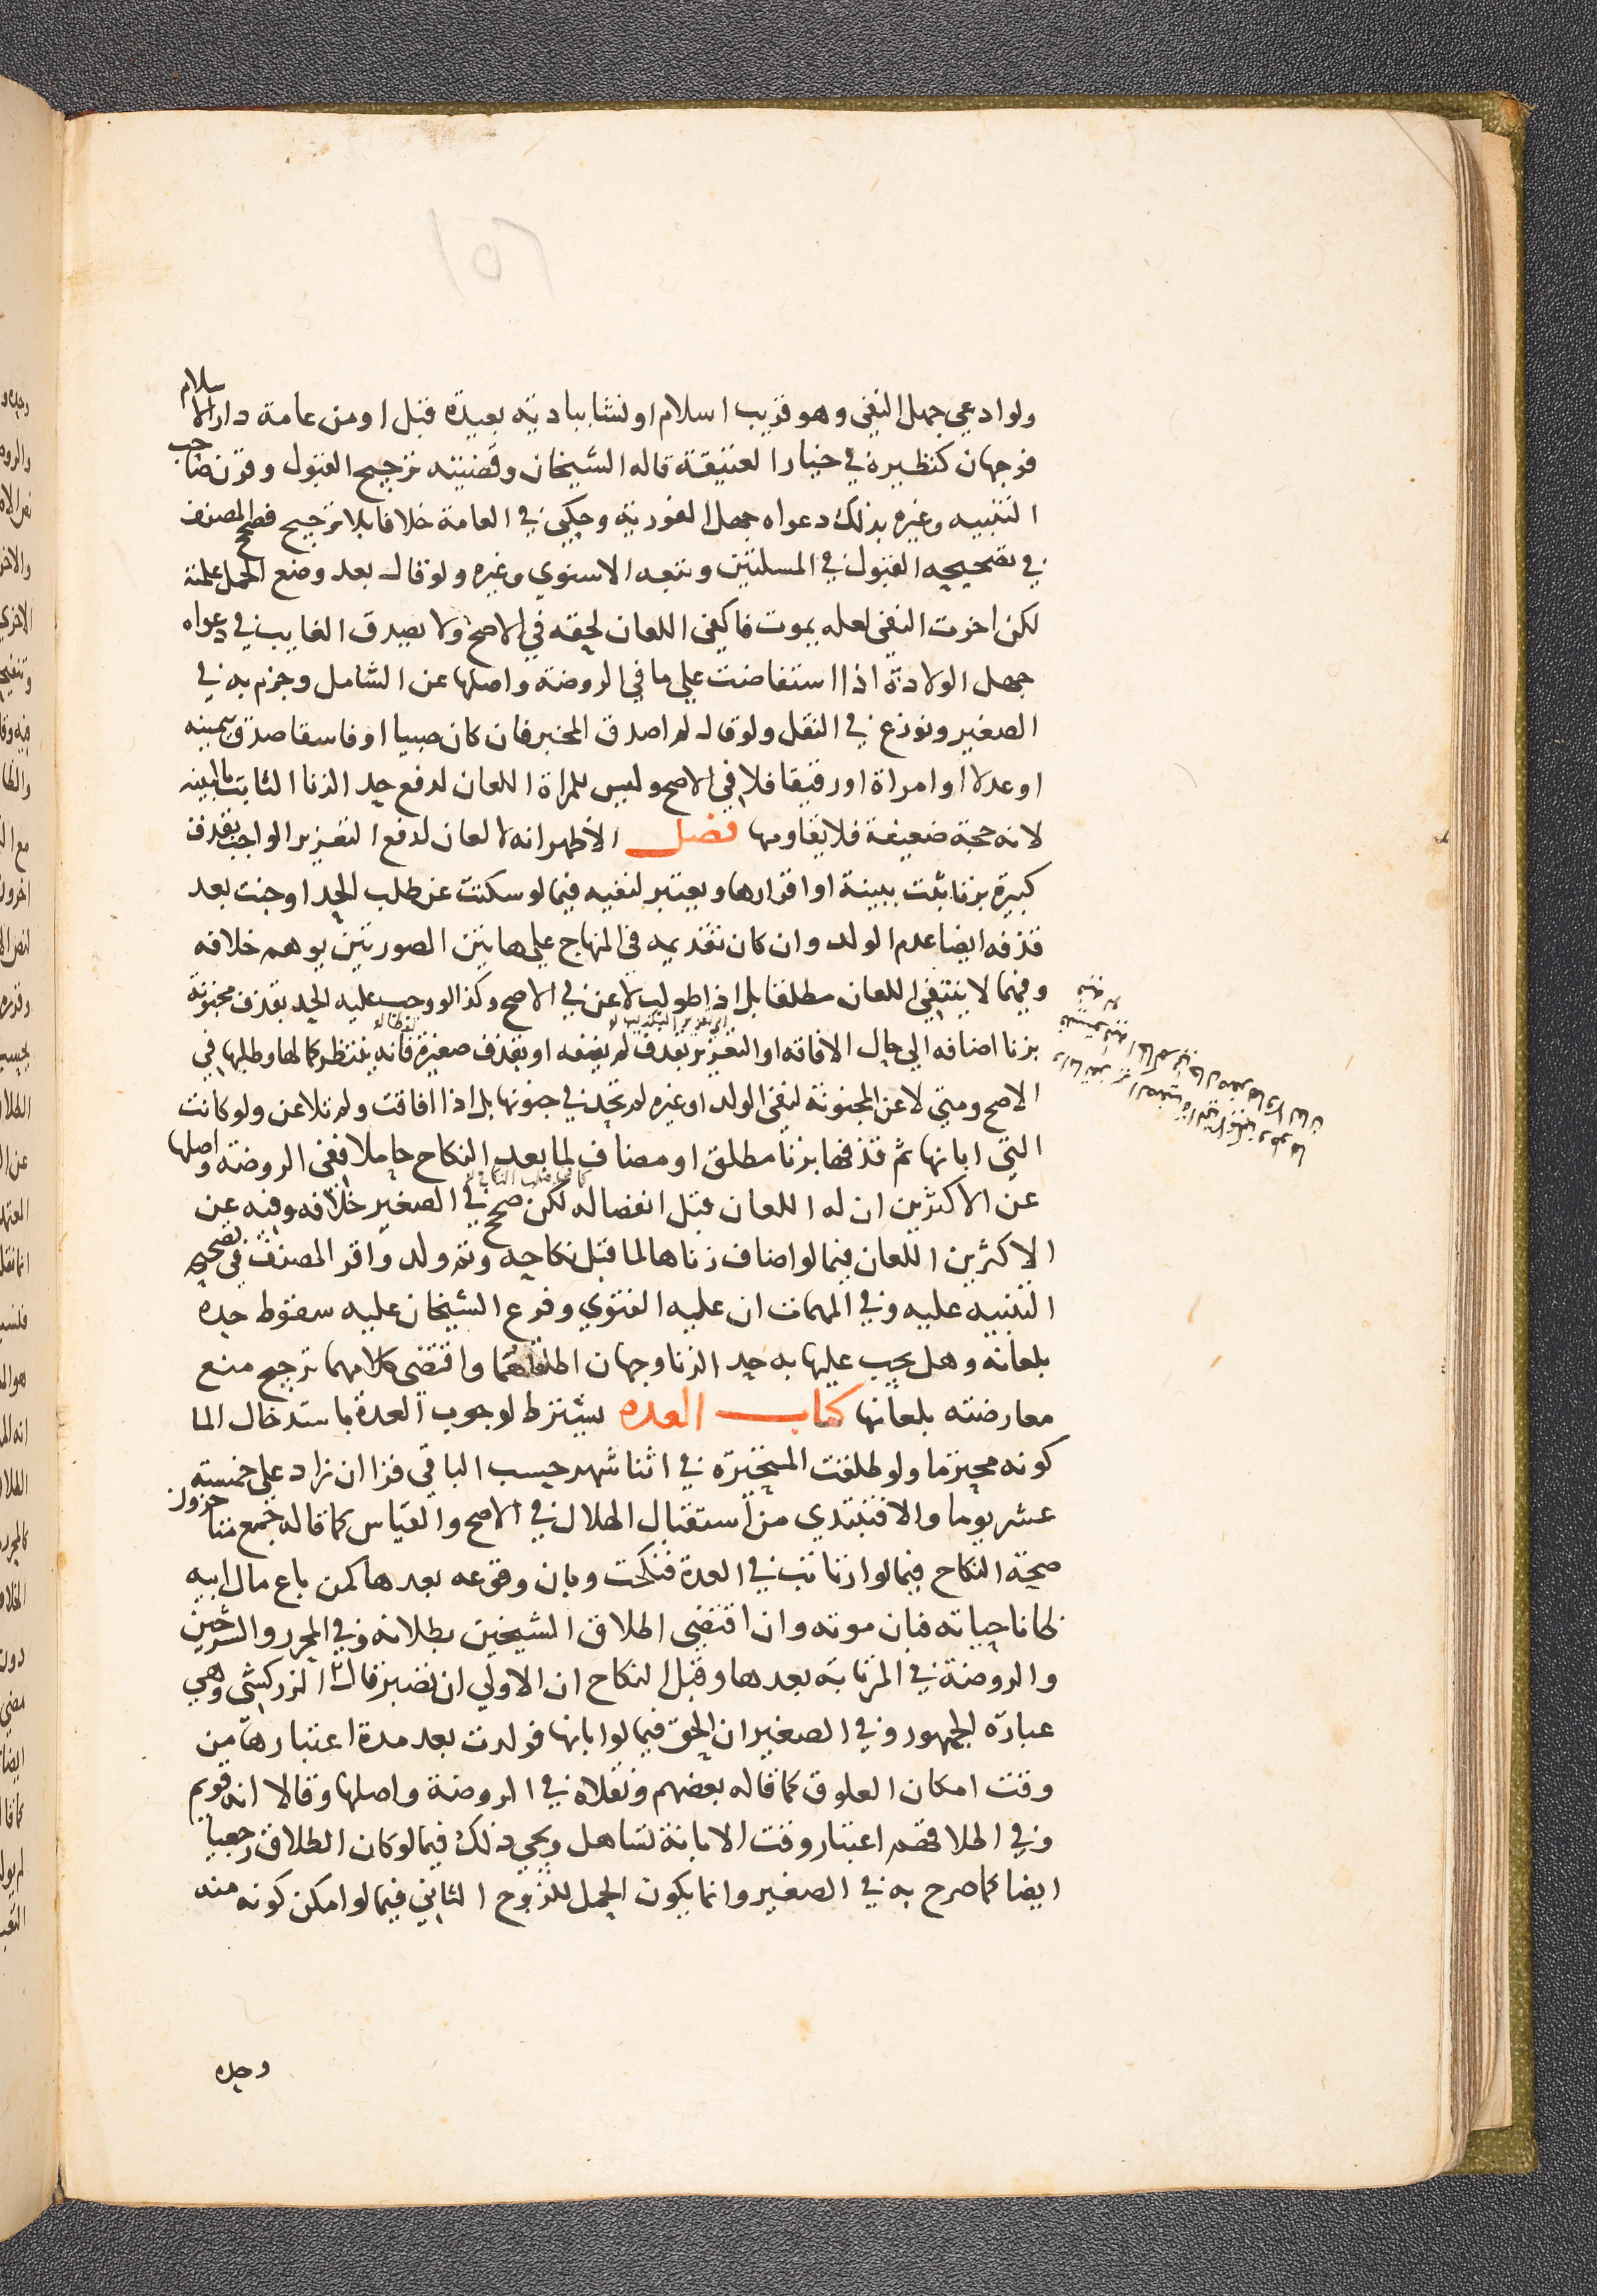 ١٥٦
ولو ادعي جهل النفي وهو قريب اسلام او نشا ببادية بعيدة قبل او من عامة دار الاسلام
فوجهان كنظيره في خيار العتيقة قاله الشيخان وقضيته ترجيح القبول وقرن صاحب
التنبيه وغيره بذلك دعواه جهل الفورية وحكي في العامة خلافا بلا ترجيح فصحح المصنف
في تصحيحه القبول في المسلتين وتبعه الاسنوي وغيره ولو قال بعد وضع الحمل علمته
لكن اخرت النفي لعله يموت فاكفي اللعان لحقه في الاصح ولا يصدق الغايب في دعواه
جهل الولادة اذا استفاضت علي ما في الروضة واصلها عن الشامل وجزم به في
الصغير ونوزع في النقل ولو قال لم اصدق المخبر فان كان صبيا او فاسقا صدق بيمينه
او عدلا او امراة او رقيقا فلا في الاصح وليس للمراة اللعان لدفع حد الزنا الثابت بالبينه
لانه حجة ضعيفة فلا يقاومها فصل الاظهر انه لا لعان لدفع التعزير الواجب بقذف
كبيرة بزنا ثبت ببينة او اقرارها ويعتبر لنفيه فيما لو سكتت عن طلب الحد او جنت بعد
قذفه ايضا عدم الولد وان كان تقديمه في المنهاج علي هاتين الصورتين يوهم خلافه
وفيهما لا ينتفي اللعان مطلقا بل اذا طولب لاعن في الاصح وكذا لو وجب عليه الحد بقذف مجنونة
بزنا اضافه الي حال الافاقه او التعزير بقذف لم يضفه او بقذف صغيرة فانه ينتظر كمالها وطلبها في
الاصح ومتي لاعن المجنونة لنفي الولد او غيره لم تحد في جنونها بل اذا افاقت ولم تلاعن ولو كانت
التي ابانها ثم قذفها بزنا مطلق او مضاف لما بعد النكاح حاملا ففي الروضة واصلها
عن الاكثرين ان له اللعان قبل انفصاله لكن صحح في الصغير خلافه وفيه عن
الاكثرين اللعان فيما لو اضاف زناها لما قبل نكاحه وثم ولد واقر المصنف في تصحيح
التنبيه عليه وفي المهمات ان عليه الفتوي وفرع الشيخان عليه سقوط حده
بلعانه وهل يجب عليها به حد الزنا وجهان اطلقاهما واقتضي كلامهما ترجيح منع
معارضته بلعانها كتاب العده يشترط لوجوب العدة باستدخال الما
كونه محترما ولو طلقت المتحيرة في اثنا شهر حسب الباقي قرا ان زاد علي خمسته
عشر يوما والا فتبتدي من استقبال الهلال في الاصح والقياس كما قاله جمع متاخرون
صحة النكاح فيما لو ارتابت في العدة فنكحت وبان وقوعه بعدها كمن باع مال ابيه
ظانا حياته فبان موته وان اقتضي اطلاق الشيخين بطلانه وفي المحرر والشرحين
والروضة في المرتابة بعدها وقبل النكاح ان الاولي ان تصبر قال الزركشي وهي
عبارة الجمهور وفي الصغير ان الحق فيما لو ابانها فولدت بعد مدة اعتبارها من
وقت امكان العلوق كما قاله بعضهم ونقلاه في الروضة واصلها وقالا انه قويم
وفي اطلاقهم اعتبار وقت الابانة تساهل ويجي ذلك فيما لو كان الطلاق رجعيا
ايضا كما صرح به في الصغير وانما يكون الحمل للزوج الثاني فيما لو امكن كونه منه
وحده